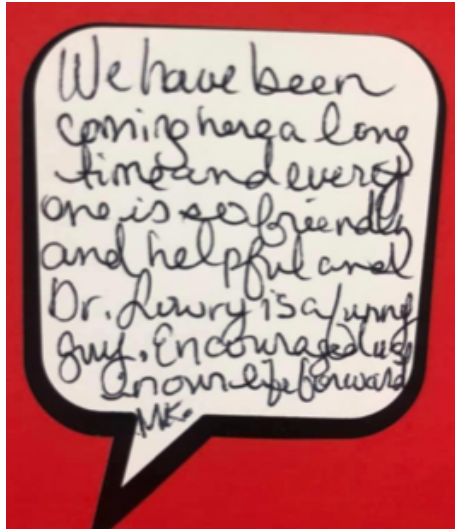 We have been
coming here a long
time and every
one is so friendly
and helpful and
Dr. Lowry is a funny
guy. Encouraged us
in our life forward
MK.